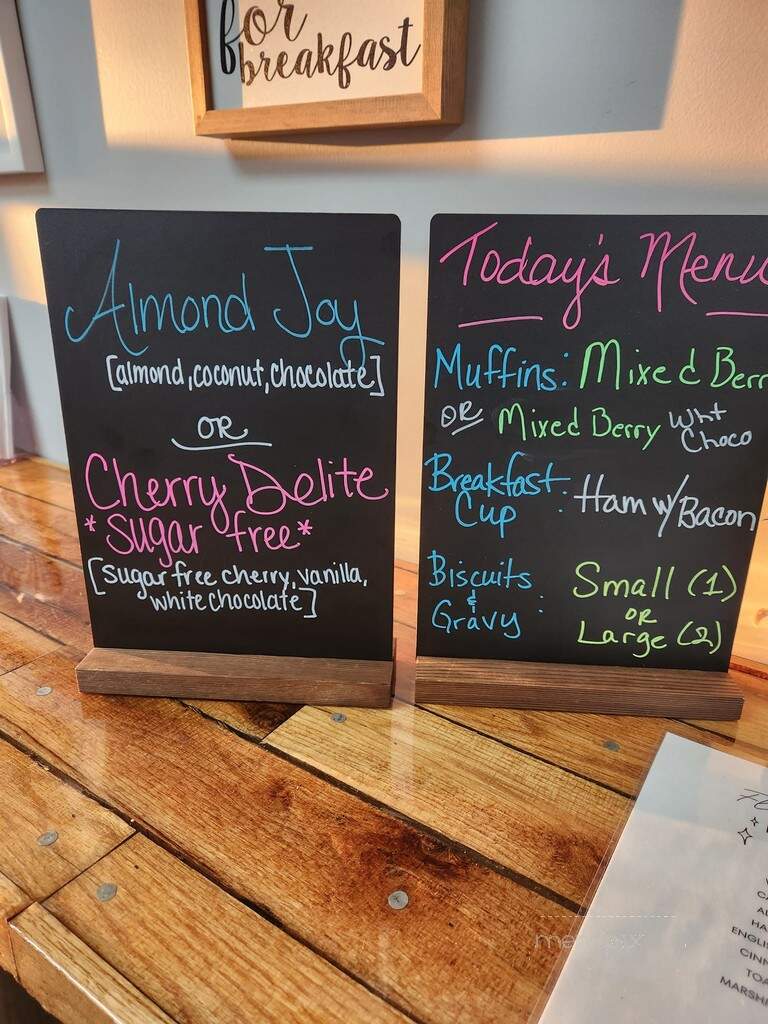 for
breakfast
Almond Joy
[almond, coconut, chocolate]
OR
Cherry Delite
*sugar free*
[sugar free cherry, vanilla,
white chocolate]
Today's Menu
Muffins: Mixed Berr
OR Mixed Berry Wht
Choco
Breakfast
Cup : Ham w/Bacon
Biscuits
&
Gravy :
Small (1)
OR
Large (2)
HA
ENGLI
CINN
TOA
MARSHM